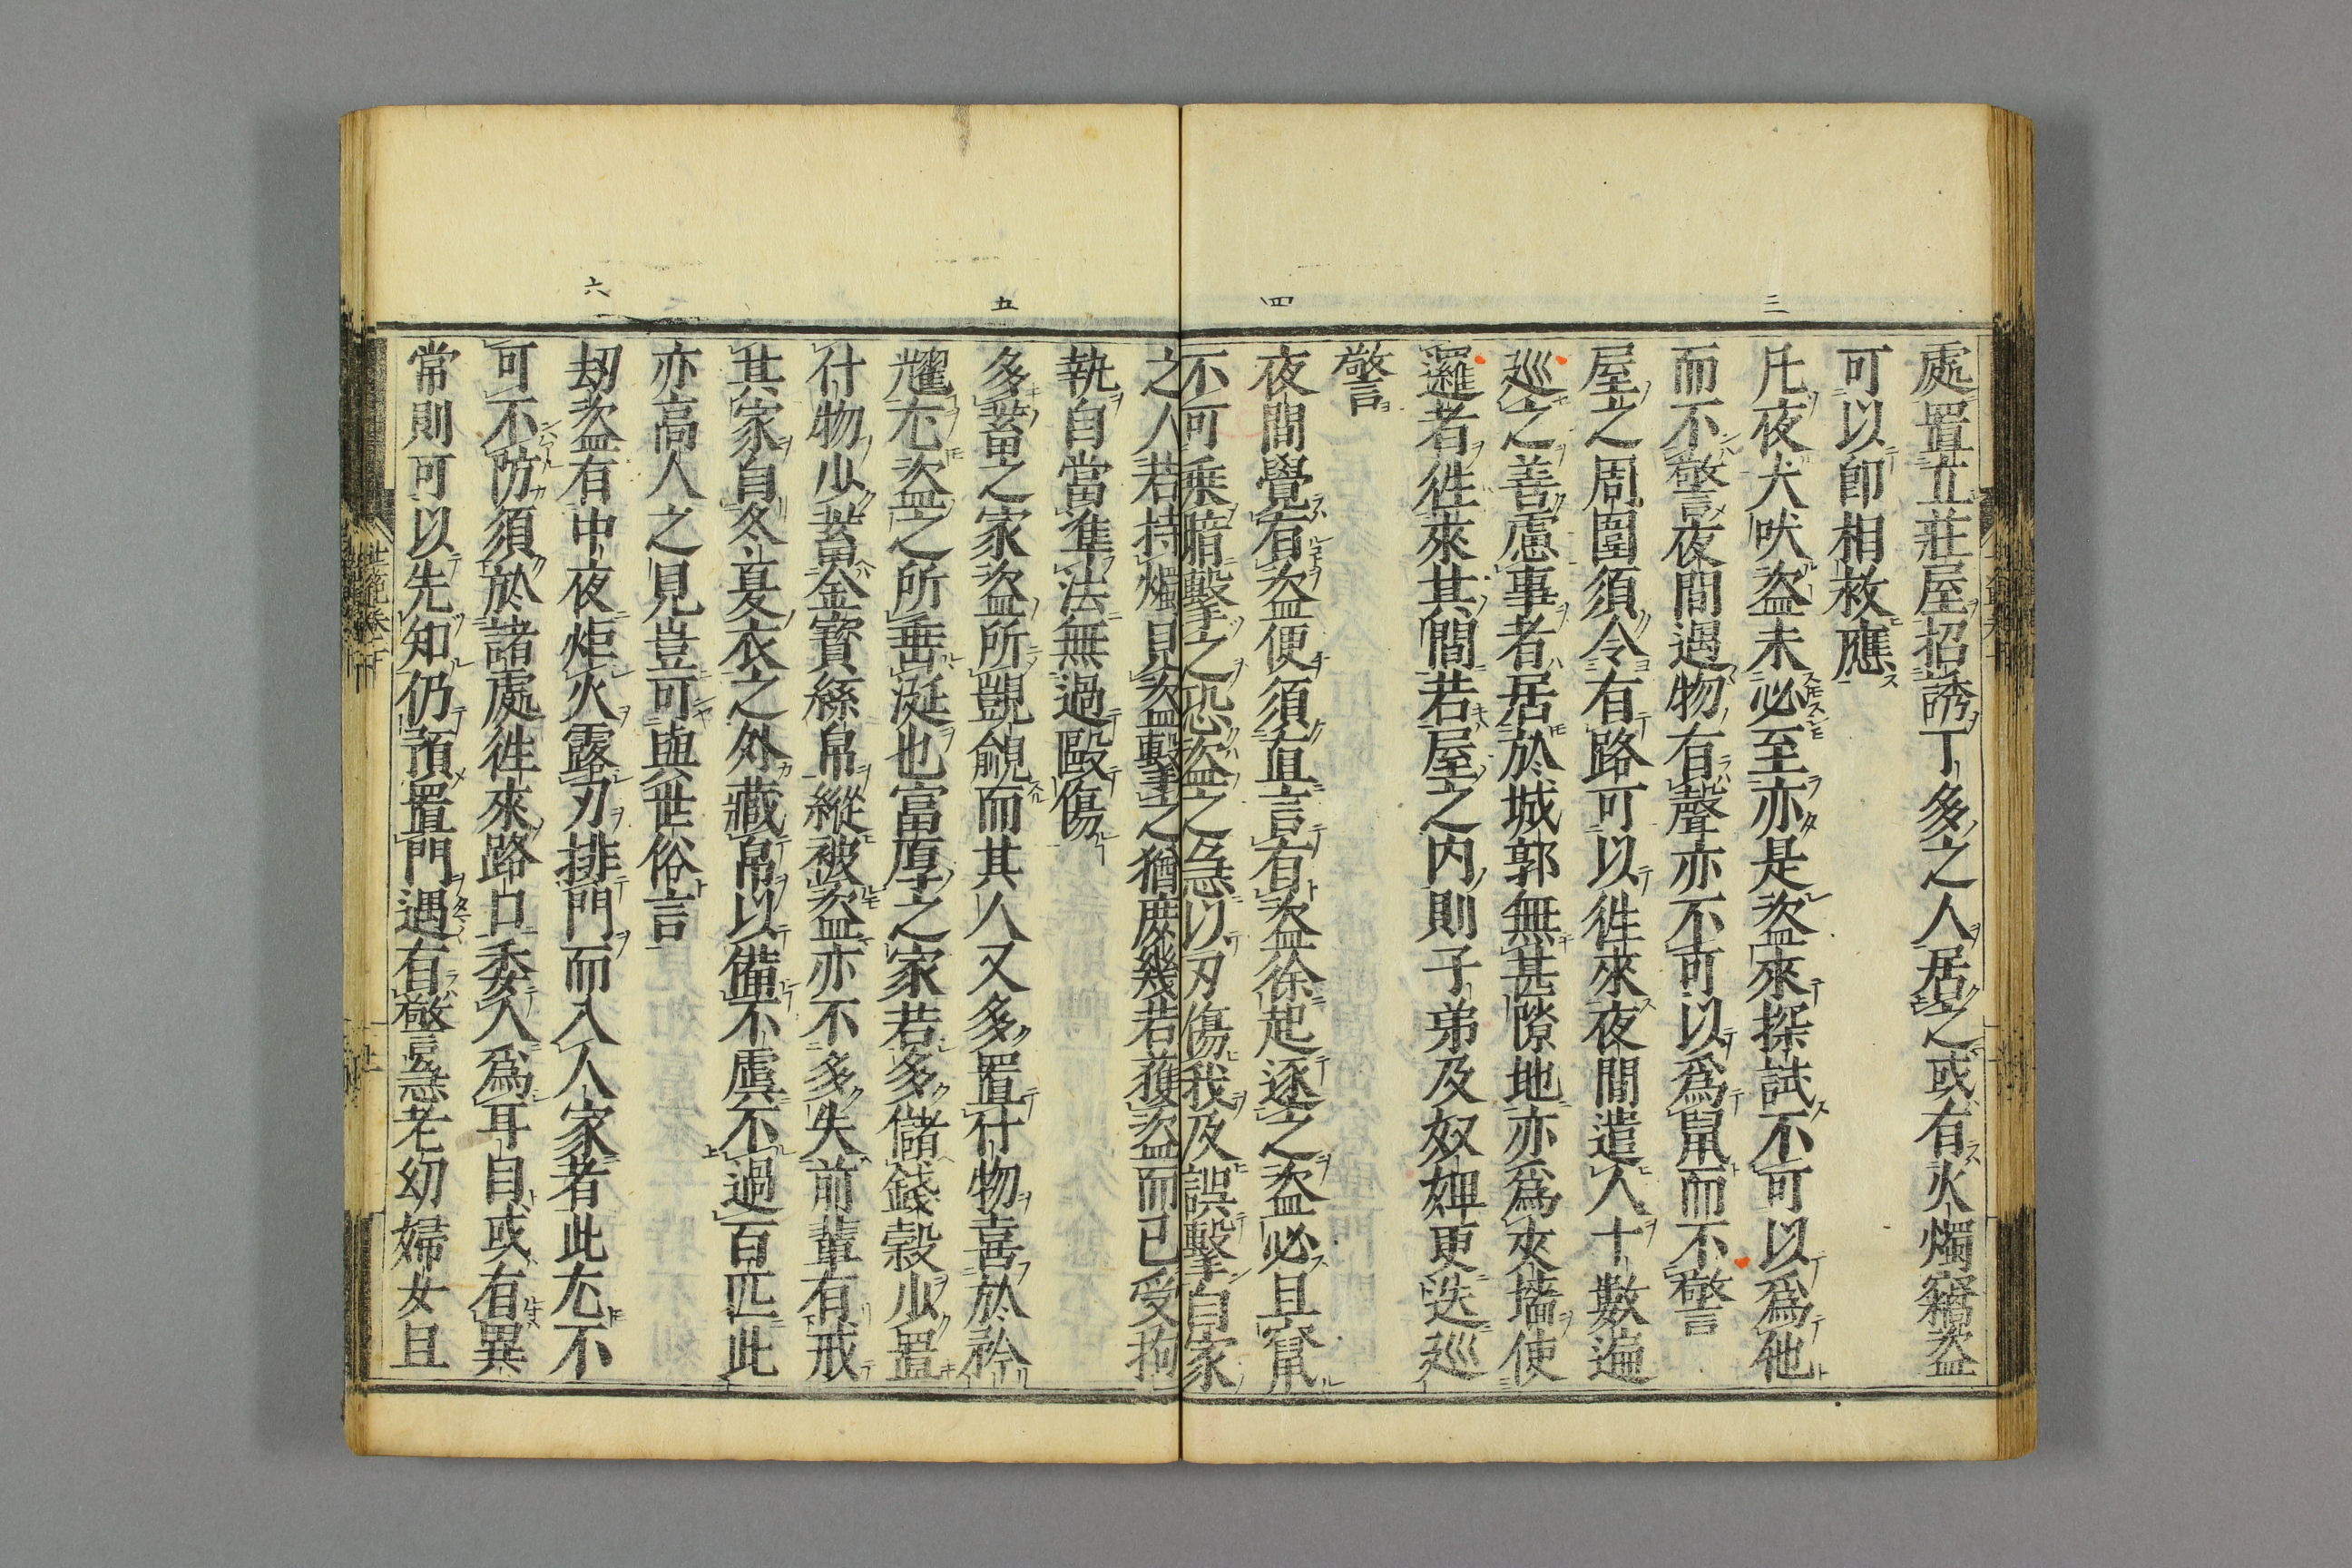 處置立莊屋招誘丁多之人居之或有火燭竊盜
可以即相救應
三
凡夜犬吠盜未必至亦是盜來探試不可以爲他
而不警夜間遇物有聲亦不可以爲鼠而不警
屋之周圍須令有路可以徃來夜間遣人十數遍
巡之善慮事者居於城郭無甚隙地亦爲夾墻使
邏者徃來其間若屋之内則子弟及奴婢更迭巡
警
四
夜間覺有盜便須直言有盜徐起逐之盜必且竄
不可乗暗擊之恐盜之急以刃傷我及誤擊自家
之人若持燭見盜擊之猶庶幾若獲盜而已受拘
執自當準法無過毆傷
五
多蓄之家盜所覬覦而其人又多置什物喜於矜
耀尤盜之所垂涎也富厚之家若多儲錢穀少置
什物少蓄金寳絲帛縱被盜亦不多失前輩有戒
其家自冬夏衣之外藏帛以備不虞不過百匹此
亦高人之見豈可與世俗言
六
劫盜有中夜炬火露刃排門而入人家者此尤不
可不防須於諸處徃來路口委人爲耳目或有異
常則可以先知仍預置門遇有警急老幼婦女且
世範卷下